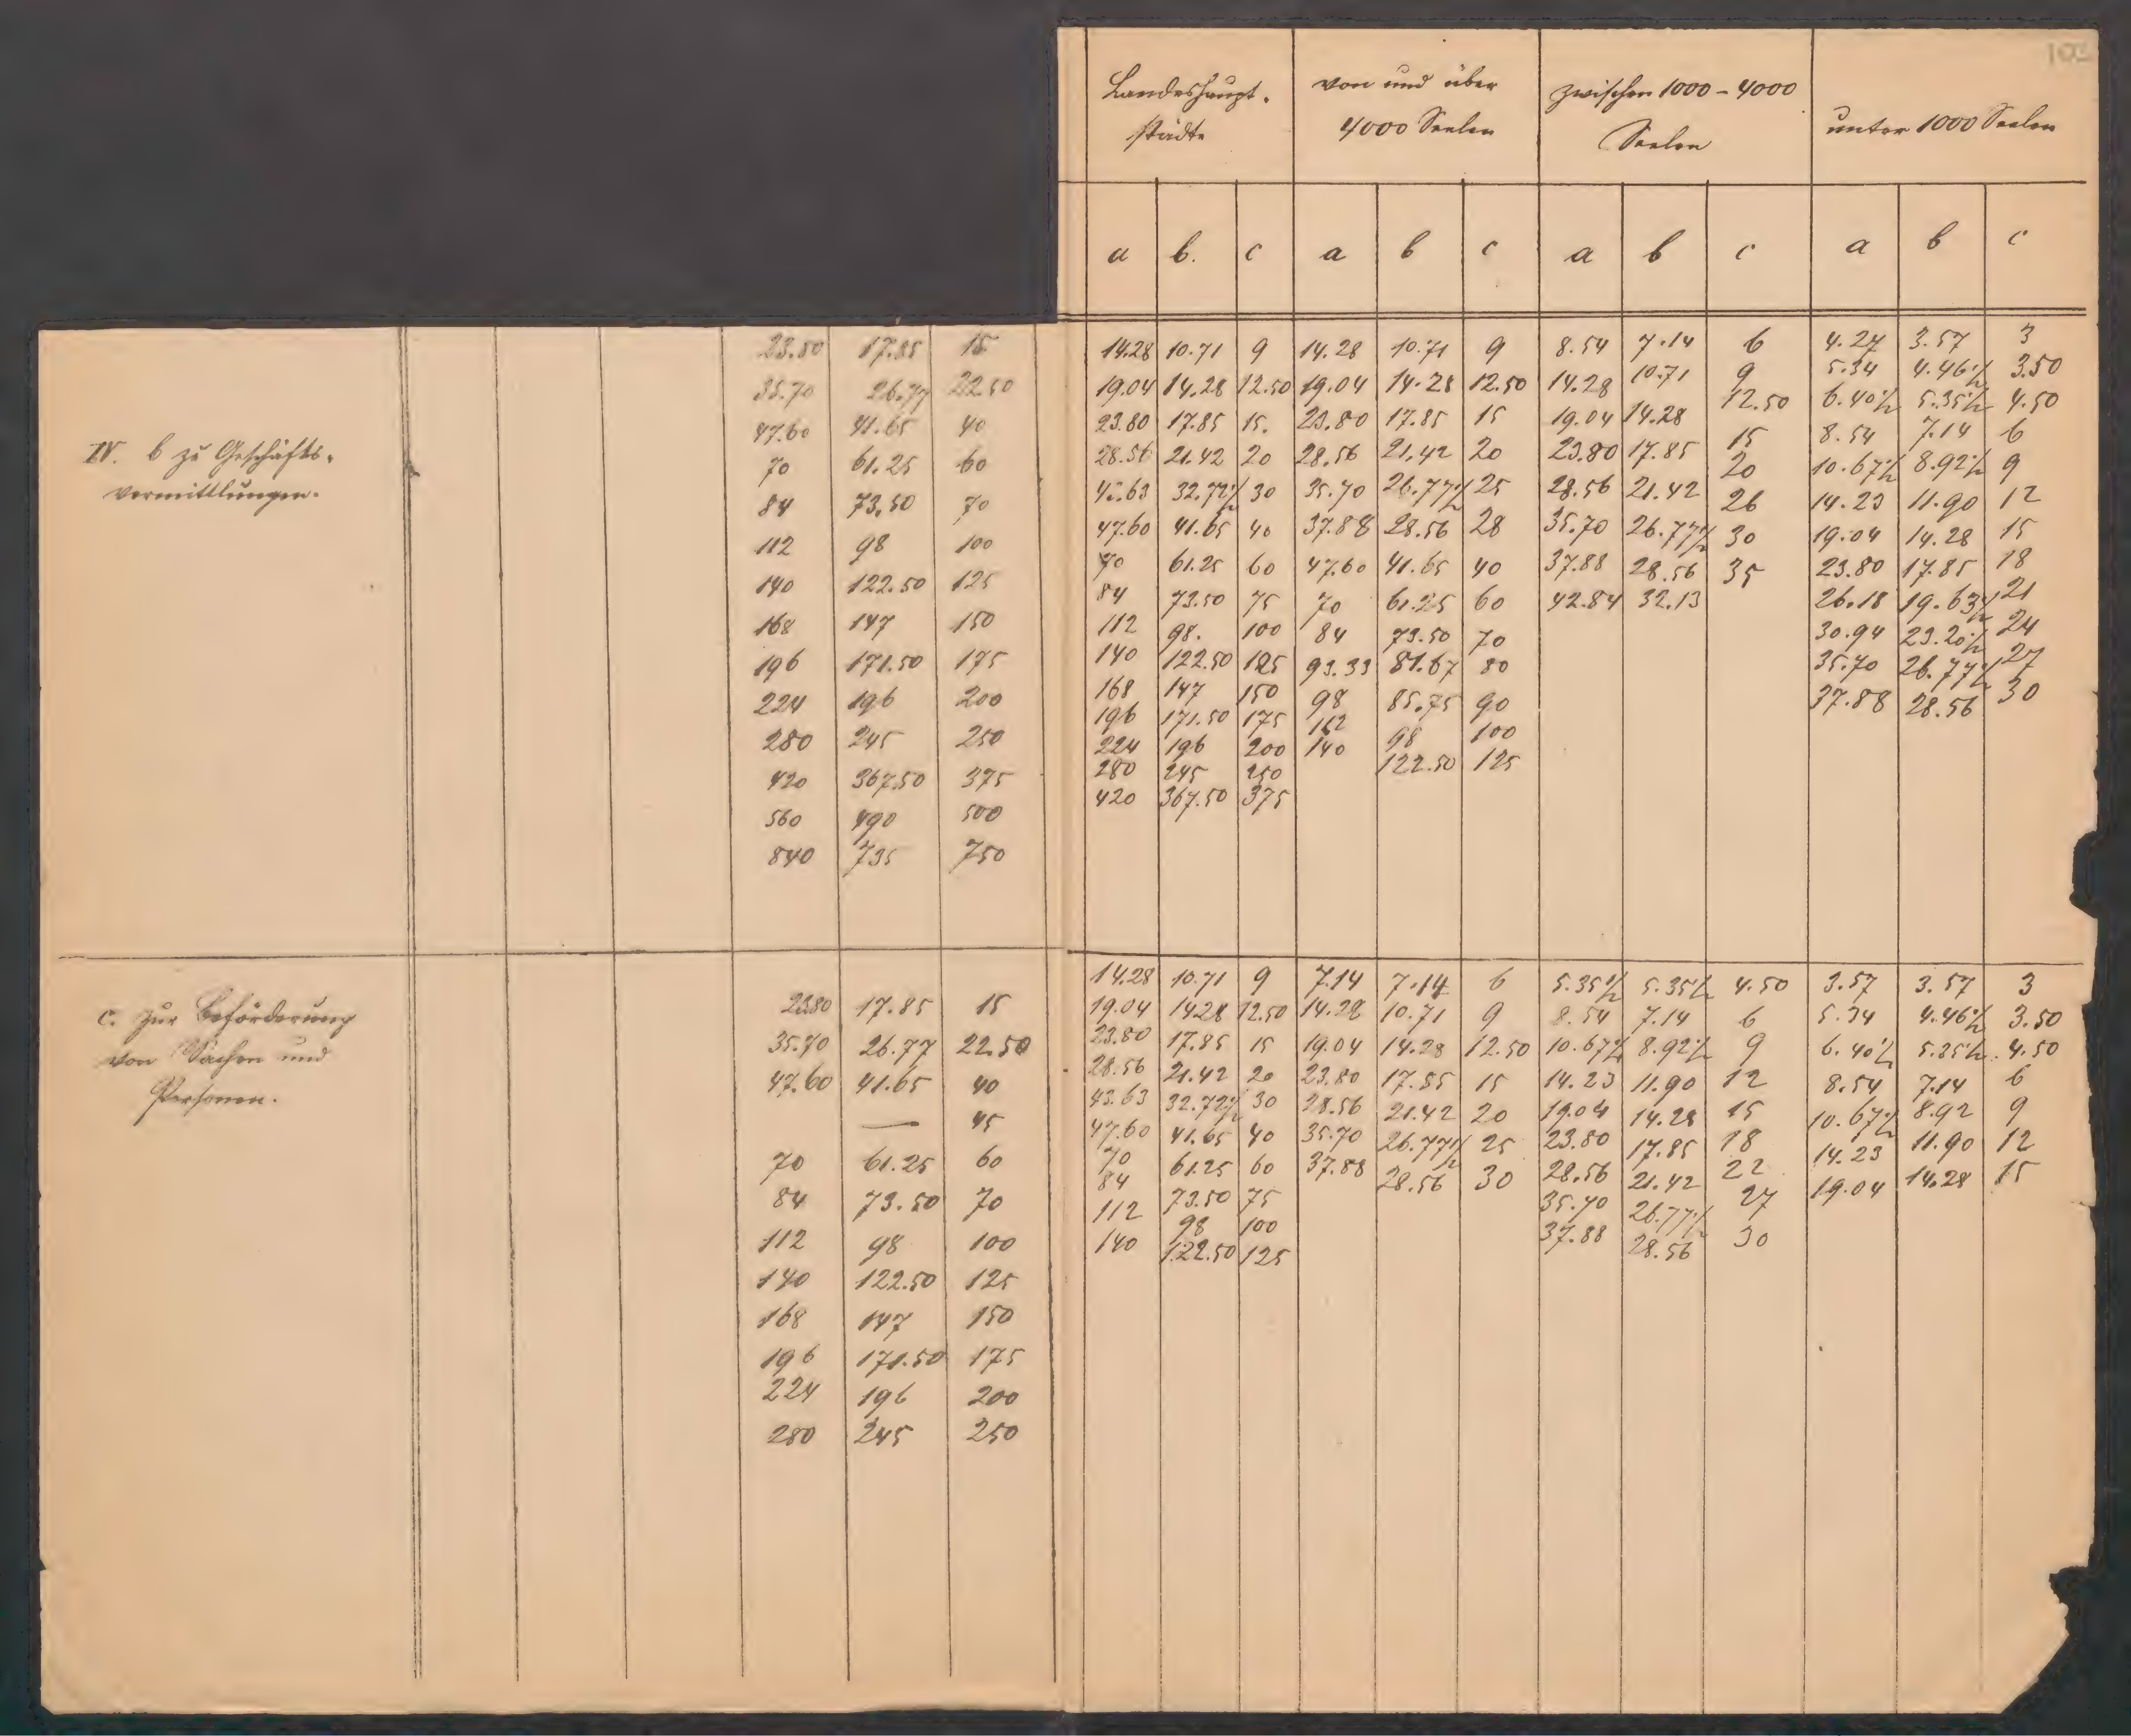 Landeshaupt- von und über zwischen 1000 - 4000 unter 1000 Seelen
städte 4000 Seelen Seelen
a b. c a b c a b c a b c
IV. b zu Geschäfts-
vermittlungen.
23.80 17.85 15 14.28 10.71 9 14.28 10.71 9 8.54 7.14 6 4.27 3.57 3
35.70 26.77 22.50 19.04 14.28 12.50 19.04 14.28 12.50 14.28 10.71 9 5.34 4.46½ 3.50
47.60 41.65 40 23.80 17.85 15. 23.80 17.85 15 19.04 14.28 12.50 6.40½ 5.35½ 4.50
70 61.25 60 28.56 21.42 20 28.56 21.42 20 23.80 17.85 15 8.54 7.14 6
84 73.50 70 43.63 32.72½ 30 35.70 26.77½ 25 28.56 21.42 20 10.67½ 8.92½ 9
112 98 100 47.60 41.65 40 37.88 28.56 28 35.70 26.77½ 26 14.23 11.90 12
140 122.50 125 70 61.25 60 47.60 41.65 40 37.88 28.56 30 19.04 14.28 15
168 147 150 84 73.50 75 70 61.25 60 42.84 32.13 35 23.80 17.85 18
196 171.50 175 112 98. 100 84 73.50 70 26.18 19.63½ 21
224 196 200 140 122.50 125 93.33 81.67 80 30.94 23.20½ 24
280 245 250 168 147 150 98 85.75 90 35.70 26.77½ 27
420 367.50 375 196 171.50 175 112 98 100 37.88 28.56 30
560 490 500 224 196 200 140 122.50 125
840 735 750 280 245 250
420 367.50 375
c. Zur Beförderung
von Sachen und
Personen.
23.80 17.85 15 14.28 10.71 9 7.14 7.14 6 5.35½ 5.35½ 4.50 3.57 3.57 3
35.70 26.77 22.50 19.04 14.28 12.50 14.28 10.71 9 8.54 7.14 6 5.34 4.46½ 3.50
47.60 41.65 40 23.80 17.85 15 19.04 14.28 12.50 10.67½ 8.92½ 9 6.40½ 5.35½ 4.50
— 45 28.56 21.42 20 23.80 17.85 15 14.23 11.90 12 8.54 7.14 6
70 61.25 60 43.63 32.72½ 30 28.56 21.42 20 19.04 14.28 15 10.67½ 8.92 9
84 73.50 70 47.60 41.65 40 35.70 26.77½ 25 23.80 17.85 18 14.23 11.90 12
112 98 100 70 61.25 60 37.88 28.56 30 28.56 21.42 22 19.04 14.28 15
140 122.50 125 84 73.50 75 35.70 26.77½ 27
168 147 150 112 98 100 37.88 28.56 30
196 171.50 175 140 122.50 125
224 196 200
280 245 250